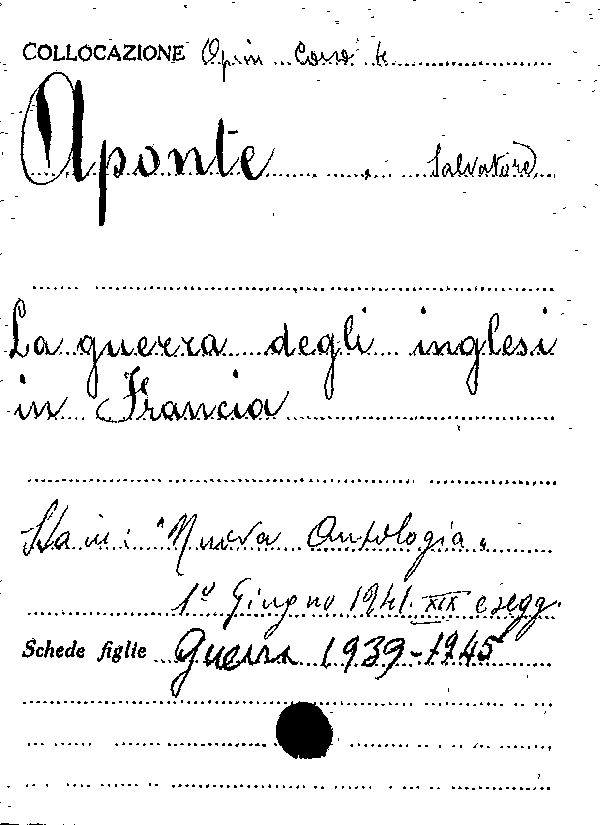 COLLOCAZIONE
Aponte Salvatore
La guerra degli inglesi
in Francia
Sta in: "Nuova Antologia"
1º Giugno 1941. XIX e segg.
Schede figlie Guerra 1939-1945